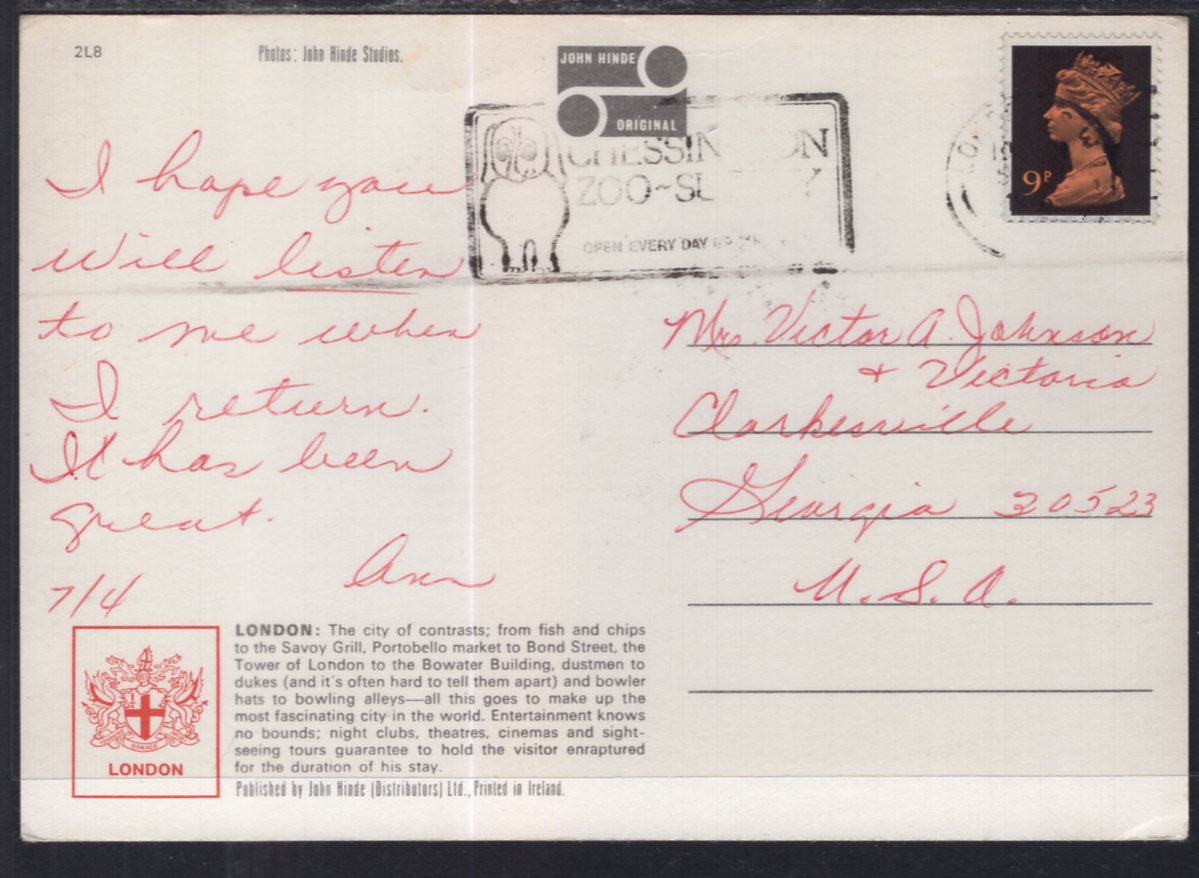 2L8
Photos: John Hinde Studios.
JOHN HINDE
ORIGINAL
ZOO~
OPEN EVERY DAY
9P
I hope you
will listen
to me when
I return.
It has been
great.
Ann
7/4
Mrs. Victor A. Johnson
+ Victoria
Clarkesville
Georgia 30523
U. S. A.
LONDON: The city of contrasts; from fish and chips
to the Savoy Grill, Portobello market to Bond Street, the
Tower of London to the Bowater Building, dustmen to
dukes (and it's often hard to tell them apart) and bowler
hats to bowling alleys—all this goes to make up the
most fascinating city in the world. Entertainment knows
no bounds; night clubs, theatres, cinemas and sight-
seeing tours guarantee to hold the visitor enraptured
for the duration of his stay.
Published by John Hinde (Distributors) Ltd., Printed in Ireland.
LONDON